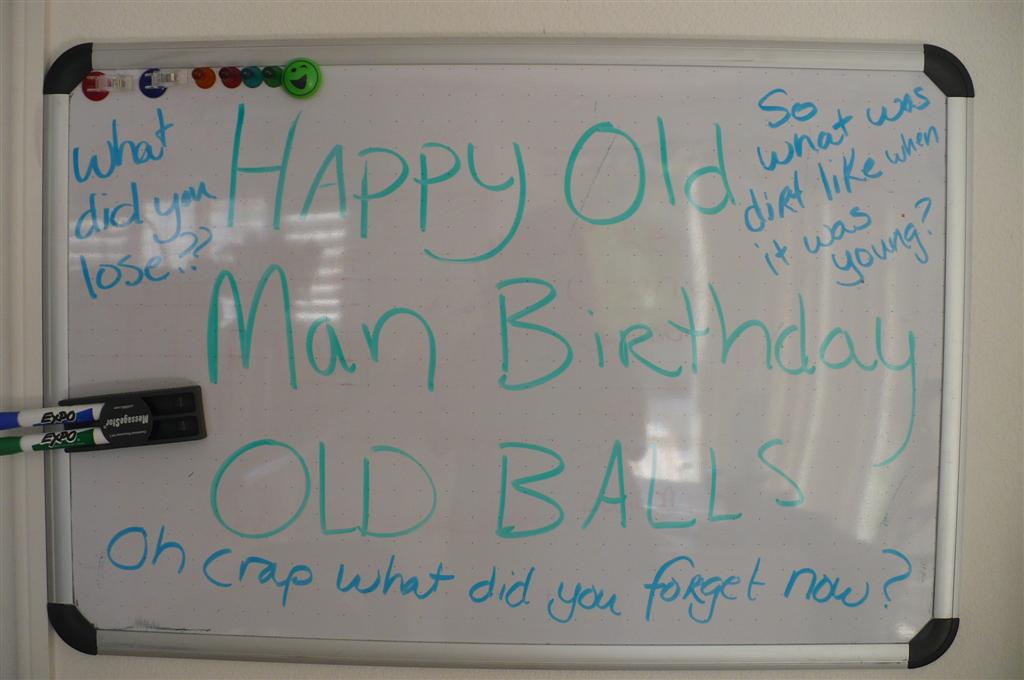 What
did you
lose??
HAppy Old
Man Birthday
OLD BALLS
So
what was
dirt like when
it was
young?
Oh crap what did you forget now?
EXPO
EXPO
MessageStor